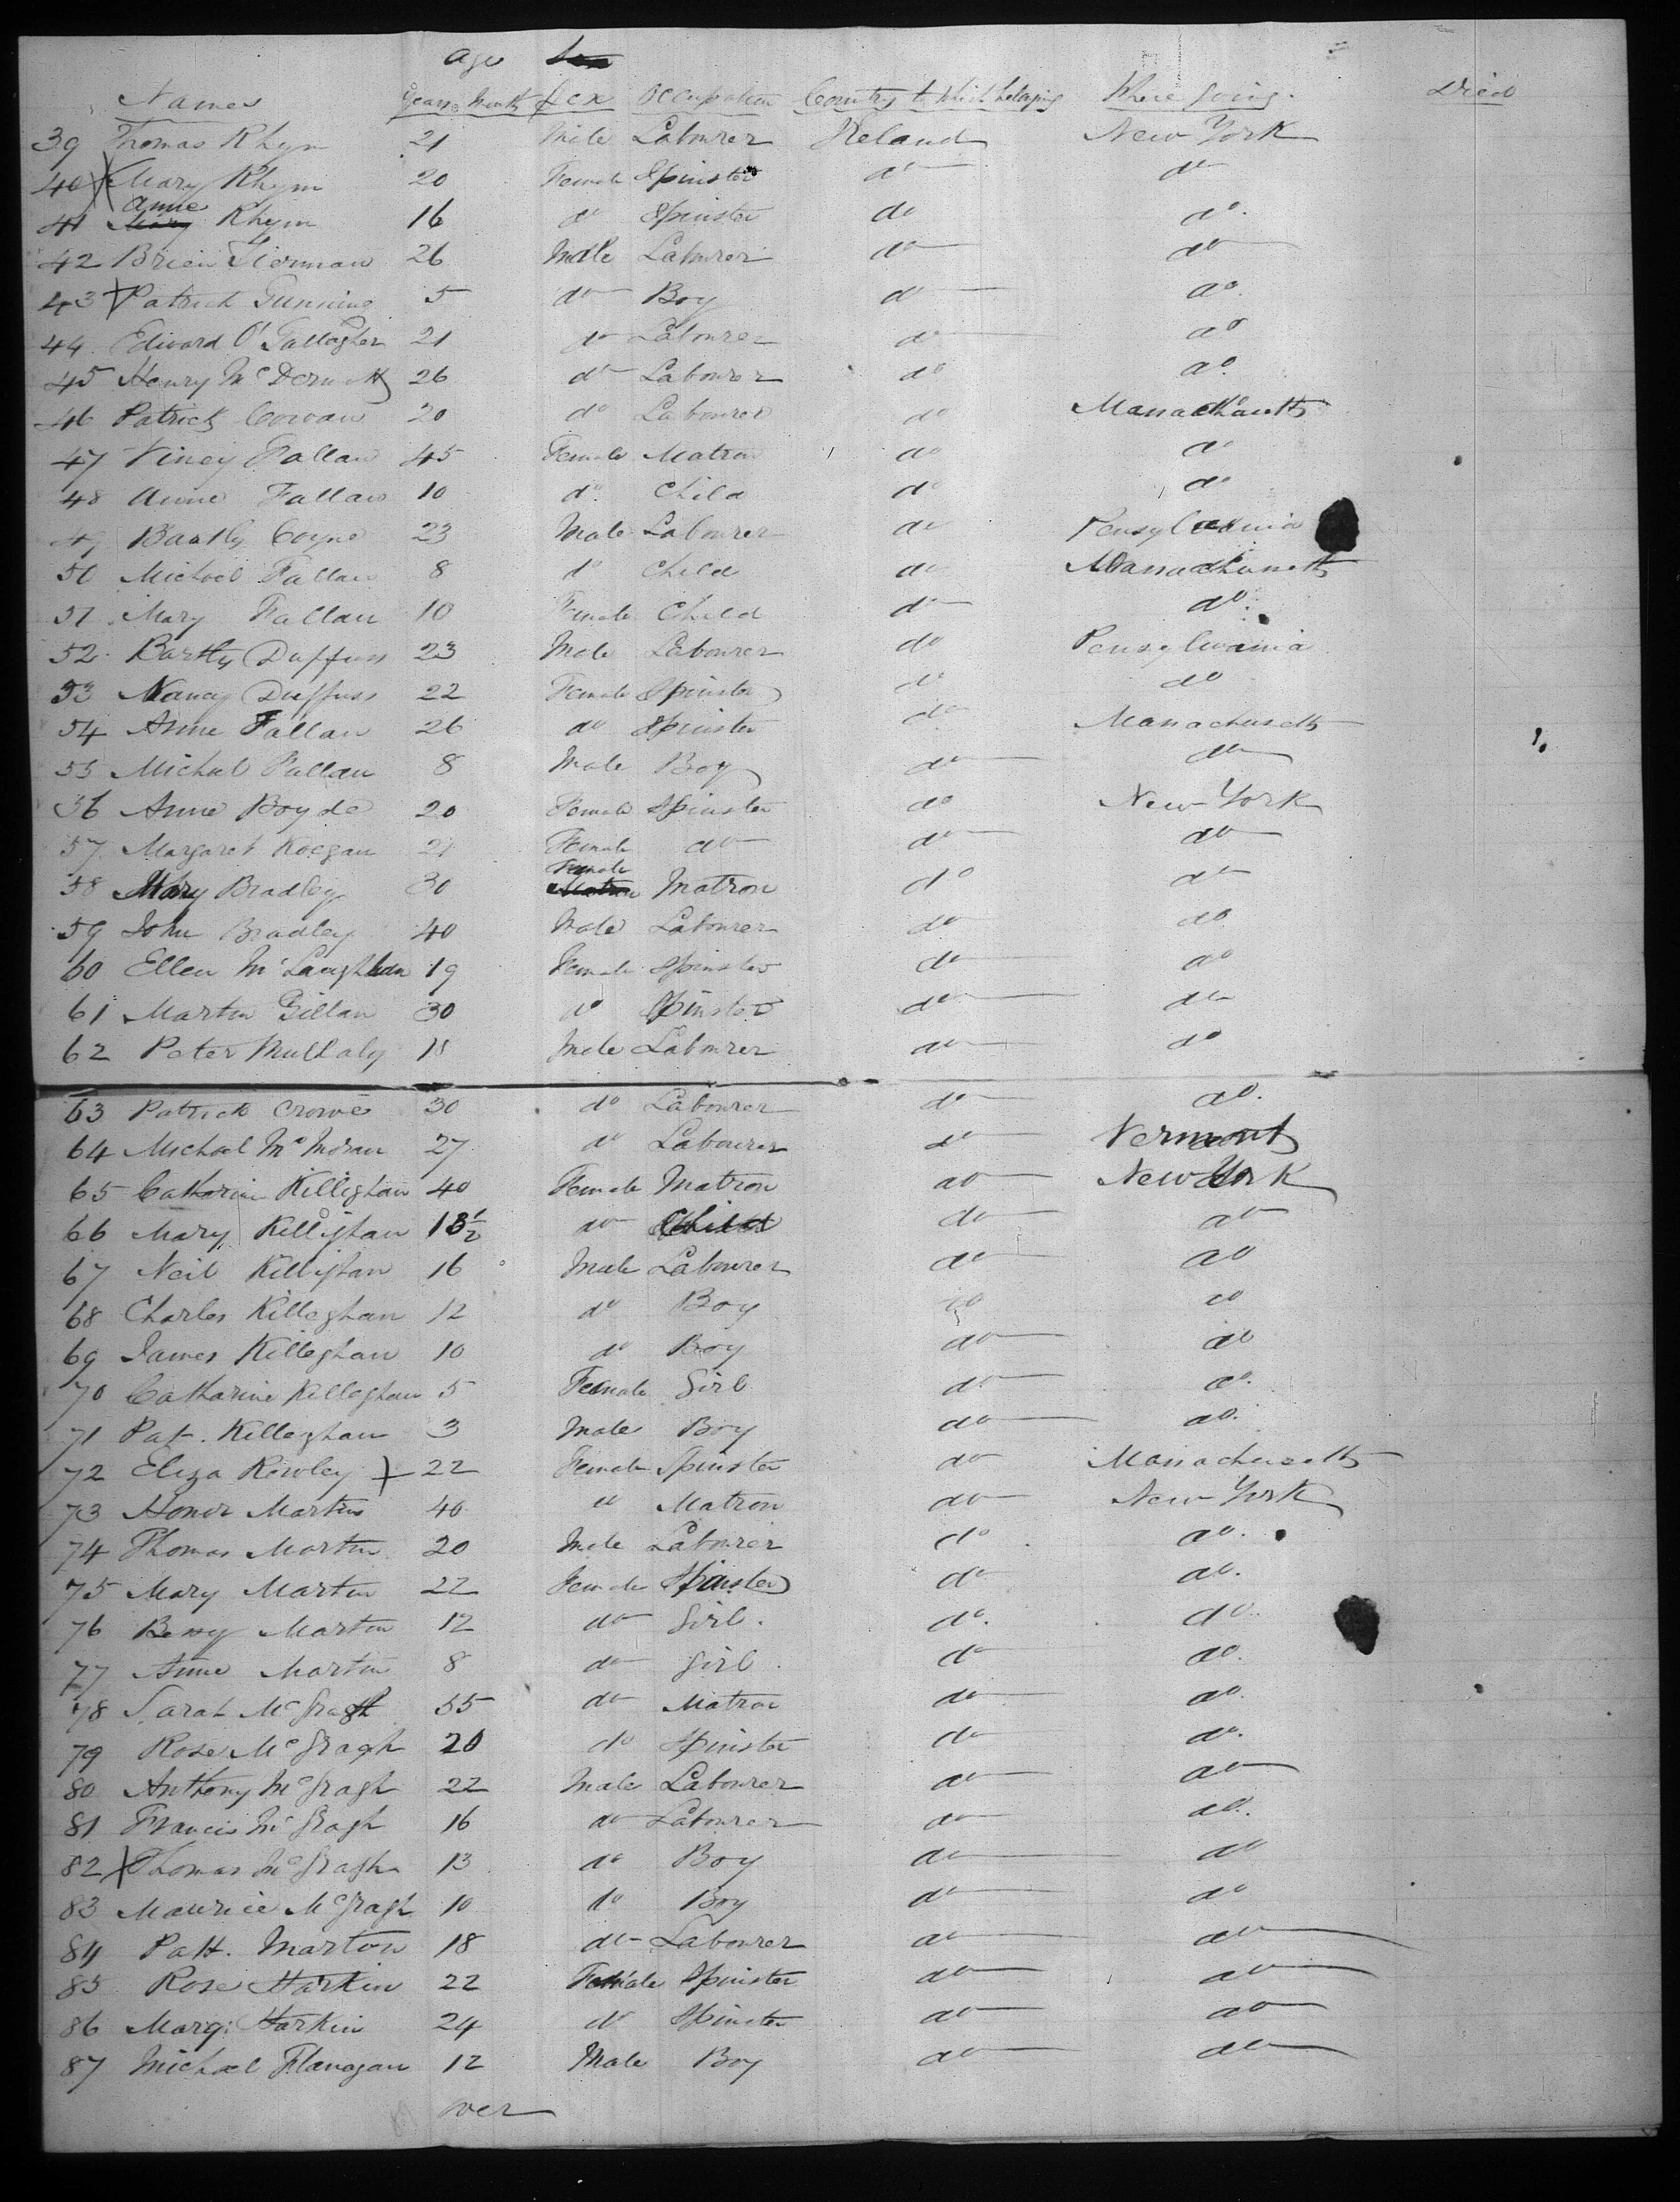 Age
Names Years Months Sex Occupation Country to Which belonging Where going. Died
39 Thomas Rhym 21 Male Labourer Ireland New York
40 Mary Rhym 20 Female Spinster do do
Anne
41 Rhym 16 do Spinster do do.
42 Brien Kiernan 26 Male Labourer do do
43 Patrick 5 do Boy do do.
44 Edward O'Gallagher 21 do Labourer do do
45 Henry McDermott 26 do Labourer do do.
46 Patrick Cowan 20 do Labourer do Massachusetts
47 Viney Fallan 45 Female Matron do do
48 Anne Fallan 10 do. Child do do
49 Bartly Coyne 23 Male Labourer do Pensylvania
50 Michael Fallan 8 do Child do Massachusetts
51 Mary Fallan 10 Female Child do do.
52 Bartly Duffuss 23 Male Labourer do Pensylvania
53 Nancy Duffuss 22 Female Spinster do do
54 Anne Fallan 26 do Spinster do Massachusetts
55 Michal Fallan 8 Male Boy do do
56 Anne Boyde 20 Female Spinster do New York
57 Margaret Keegan 21 Female do do do
Female
58 Mary Bradley 30 Matron Matron do do
59 John Bradley 40 Male Labourer do do
60 Ellen McLaughlan 19 Female Spinster do do
61 Martin Gillan 30 do Spinster do do
62 Peter Mullaly 18 Male Labourer do do
63 Patrick Crowe 30 do Labourer do do.
64 Michael McMoran 27 do Labourer do Vermont
65 Catharine Killighan 40 Female Matron do New York
66 Mary Killighan 13½ do Child do do
67 Neil Killighan 16 Male Labourer do do
68 Charles Killeghan 12 do Boy do do
69 James Killeghan 10 do Boy do do
70 Catharine Killeghan 5 Female Girl do do.
71 Pat. Killeghan 3 Male Boy do do.
72 Eliza Rowley 22 Female Spinster do Massachusetts
73 Honor Martin 40 do Matron do New York
74 Thomas Martin 20 Male Labourer do do.
75 Mary Martin 22 Female Spinster do do.
76 Bessy Martin 12 do Girl. do. do.
77 Anne Martin 8 do Girl do do.
78 Sarah McGragh 55 do Matron do do.
79 Rose McGragh 20 do Spinster do do.
80 Anthony McGragh 22 Male Labourer do do
81 Francis McGragh 16 do Labourer do do.
82 Thomas McGragh 13 do Boy do do
83 Maurice McGragh 10 do Boy do do
84 Patt. Marton 18 do Labourer do do
85 Rose Harkin 22 Female Spinster do do
86 Marg: Harkin 24 do Spinster do do
87 Michael Flanagan 12 Male Boy do do
over